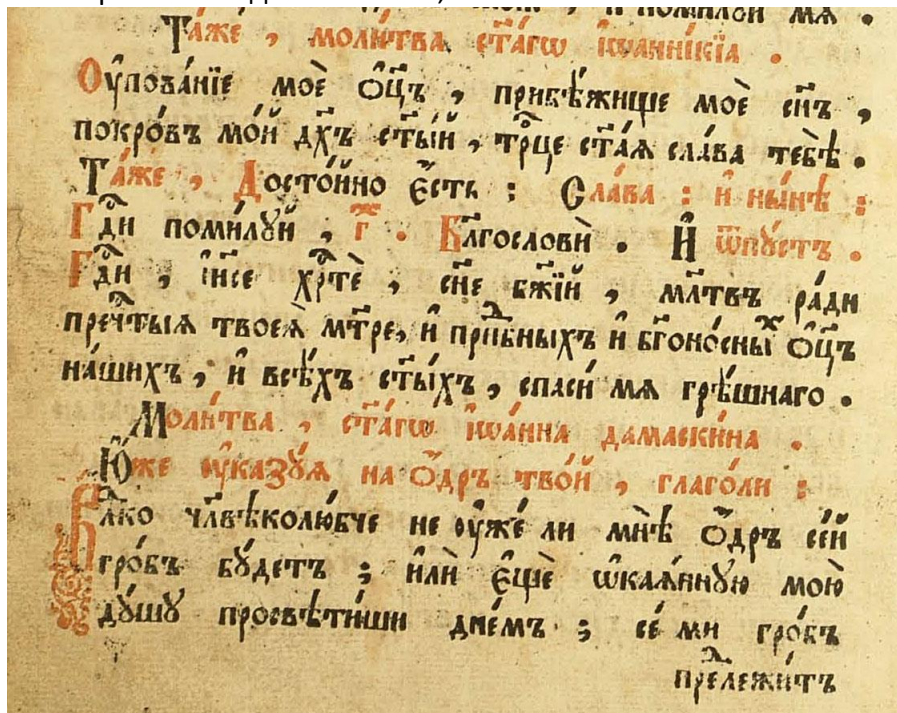 и҆ поми́лꙋй мѧ .
Та́же , моли́тва ст҃а́гѡ і҆ѡанні́кїа .
Оу҆пова́нїе моѐ ѻ҆ц҃ъ , прибѣ́жище моѐ сн҃ъ ,
покро́въ мо́й дх҃ъ ст҃ы́й , трⷪ҇це ст҃а́ѧ сла́ва тебѣ̀ .
Та́же , Досто́йно є҆́сть : Сла́ва : и҆ ны́нѣ :
Гдⷭ҇и поми́лꙋй , г҃ . Бл҃гословѝ . И҆ ѿпꙋстъ .
Гдⷭ҇и , і҆и҃се хрⷭ҇тѐ , сн҃е бж҃їй , мл҃твъ ра́ди
пречⷭ҇тыѧ твоеѧ̀ мт҃ре, и҆ прпⷣбныхъ и҆ бг҃оно́сныⷯ ѻ҆ц҃ъ
на́шихъ , и҆ всѣ́хъ ст҃ы́хъ , спасѝ мѧ грѣ́шнаго .
Моли́тва , ст҃а́гѡ і҆ѡа́нна дамаски́на .
Ю҆́же ᲂу҆каꙁꙋ́ѧ на ѻ҆́дръ тво́й , глаго́ли :
Вⷧ҇ко чл҃вѣколю́бче не ᲂу҆же́ ли мнѣ̀ ѻ҆́дръ се́й
гро́бъ бꙋ́детъ ; и҆лѝ є҆щѐ ѡ҆каѧ́ннꙋю мою̀
дꙋ́шꙋ просвѣти́ши дне́мъ ; се́ ми гро́бъ
преⷣлежи́тъ